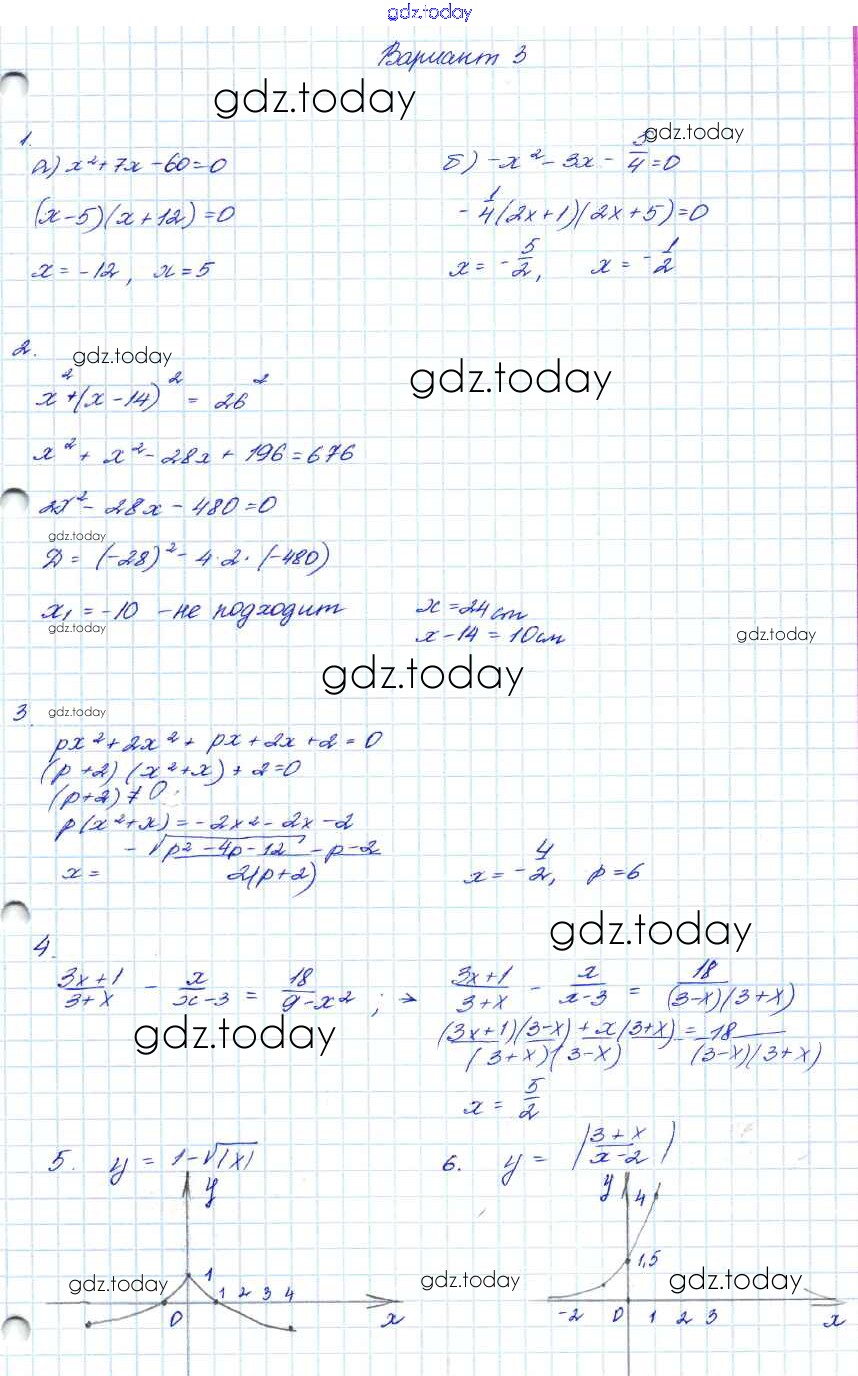 gdz.today
Вариант 3
gdz.today
1.
а) x² + 7x - 60 = 0
(x - 5)(x + 12) = 0
x = -12, x = 5
gdz.today
б) -x² - 3x - 5/4 = 0
-1/4(2x + 1)(2x + 5) = 0
x = -5/2, x = -1/2
2.
gdz.today
gdz.today
x² + (x - 14)² = 26²
x² + x² - 28x + 196 = 676
2x² - 28x - 480 = 0
gdz.today
Д = (-28)² - 4·2·(-480)
x₁ = -10 - не подходит
x = 24 cm
x - 14 = 10 см
gdz.today
gdz.today
gdz.today
3.
gdz.today
px² + 2x² + px + 2x + 2 = 0
(p + 2)(x² + x) + 2 = 0
(p + 2) ≠ 0
p(x² + x) = -2x² - 2x - 2
x = (-√(p² - 4p - 12) - p - 2) / 2(p + 2)
x = -4/2, p = 6
gdz.today
4.
(3x + 1)/(3 + x) - x/(x - 3) = 18/(9 - x²) ; → (3x + 1)/(3 + x) - x/(x - 3) = 18/((3 - x)(3 + x))
gdz.today
((3x + 1)(3 - x) + x(3 + x))/((3 + x)(3 - x)) = 18/((3 - x)(3 + x))
x = 5/2
5. y = 1 - √|x|
y
1
1 2 3 4
0
x
gdz.today
6. y = |(3 + x)/(x - 2)|
y
4
1,5
-2 0 1 2 3
x
gdz.today
gdz.today